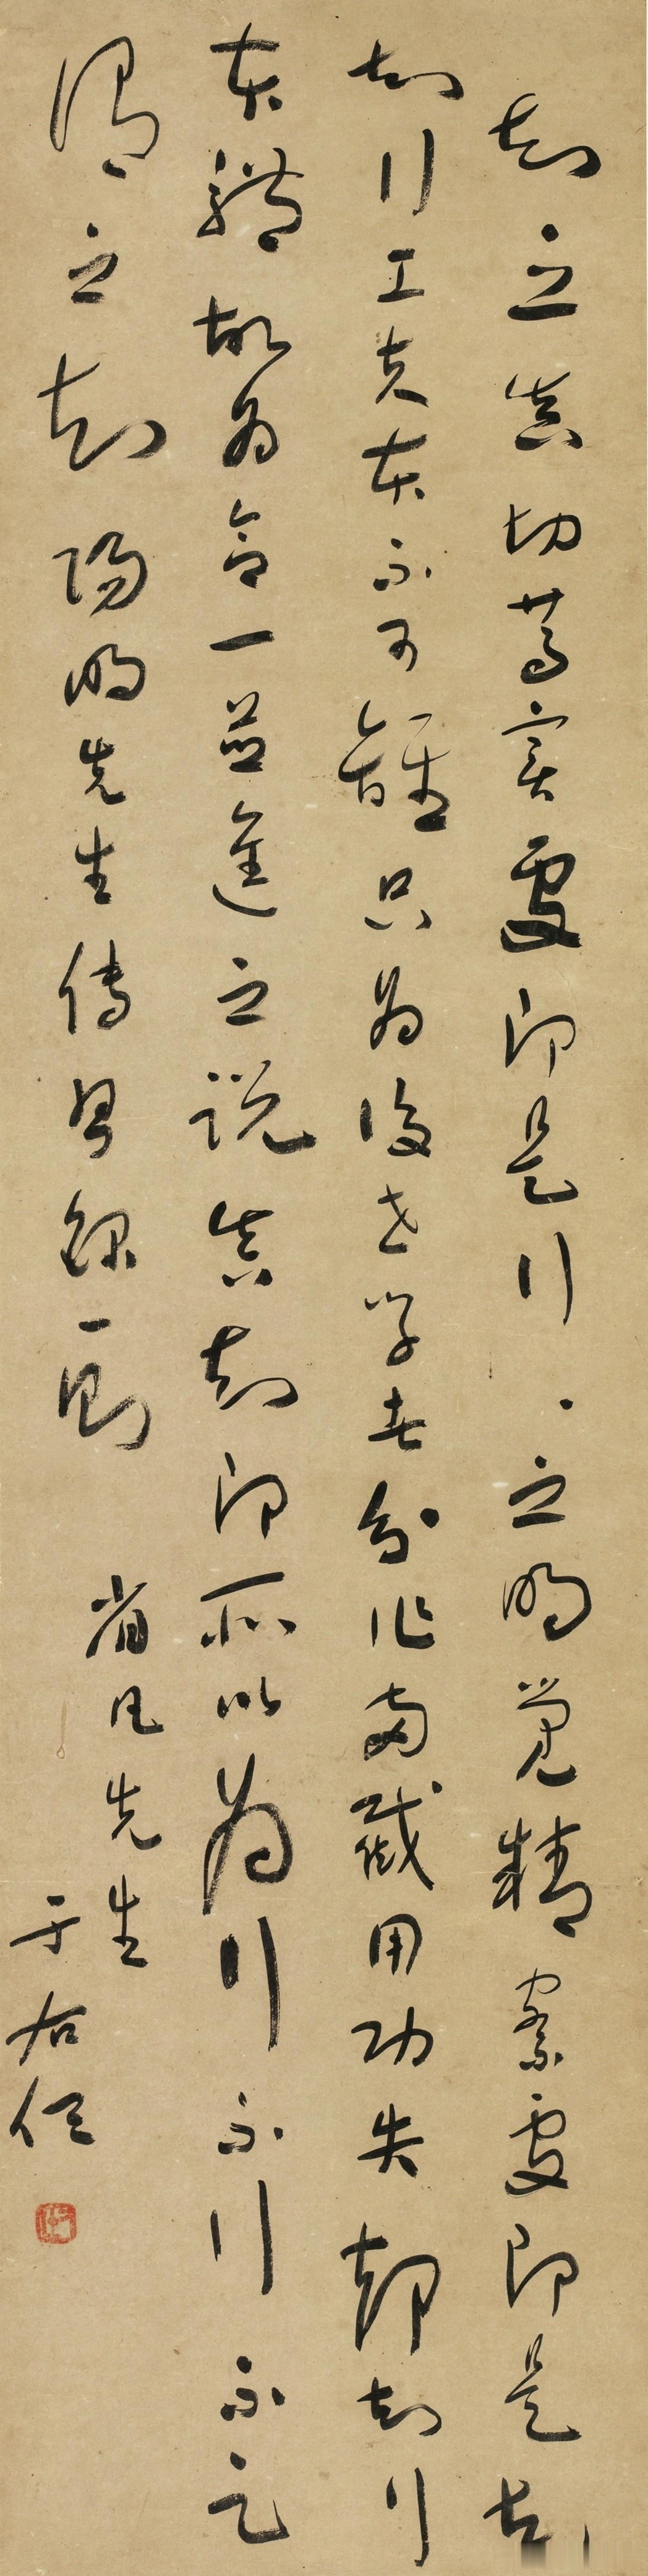 知之真切篤實處即是行〻之明覺精察處即是知
知行工夫本不可離只為後世學者分作兩截用功失却知行
本體故為合一並進之說真知即所以為行不行不足
謂之知陽明先生傳習錄一則
省凡先生
于右任